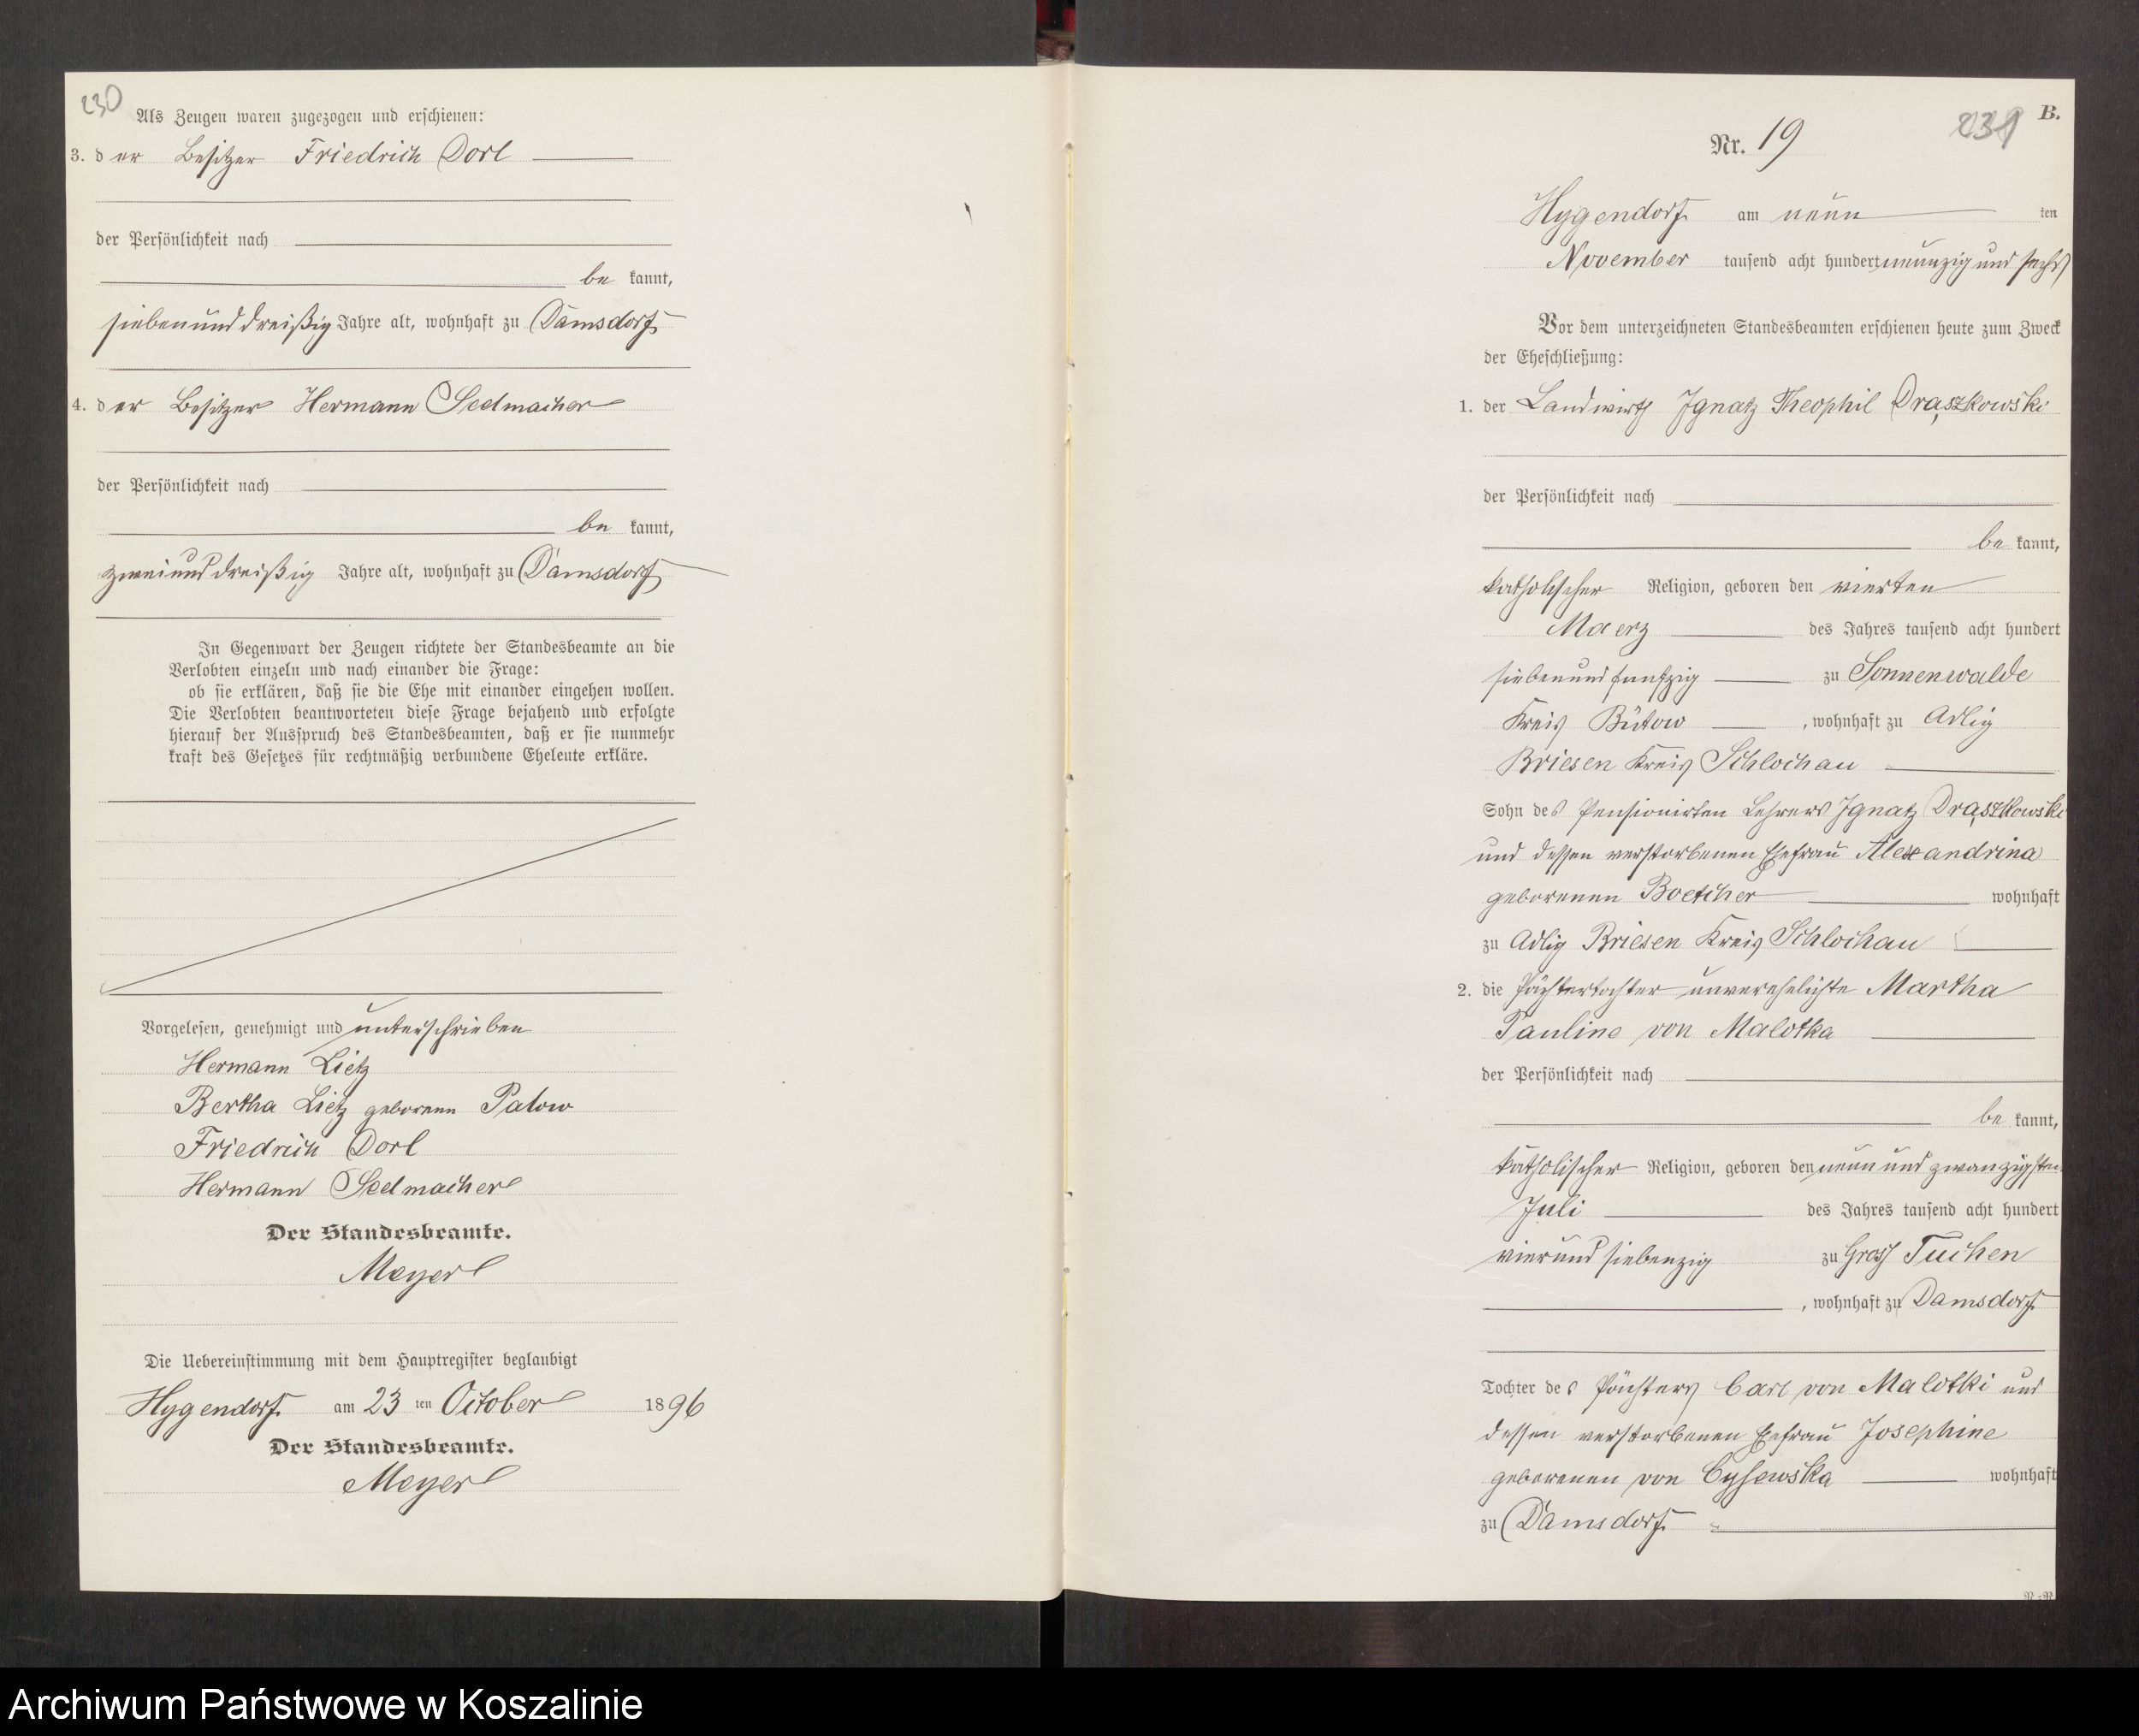 230
Als Zeugen waren zugezogen und erschienen:
3. der Besitzer Friedrich Dorl
der Persönlichkeit nach
be kannt,
siebenunddreißig Jahre alt, wohnhaft zu Damsdorf
4. der Besitzer Hermann Seelmacher
der Persönlichkeit nach
be kannt,
zweiunddreißig Jahre alt, wohnhaft zu Damsdorf
In Gegenwart der Zeugen richtete der Standesbeamte an die
Verlobten einzeln und nach einander die Frage:
ob sie erklären, daß sie die Ehe mit einander eingehen wollen.
Die Verlobten beantworteten diese Frage bejahend und erfolgte
hierauf der Ausspruch des Standesbeamten, daß er sie nunmehr
kraft des Gesetzes für rechtmäßig verbundene Eheleute erkläre.
Vorgelesen, genehmigt und unterschrieben
Hermann Lietz
Bertha Lietz geborene Patow
Friedrich Dorl
Hermann Seelmacher
Der Standesbeamte.
Meyer
Die Uebereinstimmung mit dem Hauptregister beglaubigt
Hygendorf am 23 ten October 1896
Der Standesbeamte.
Meyer
B.
231
Nr. 19
Hygendorf am neun ten
November tausend acht hundert neunzig und sechs
Vor dem unterzeichneten Standesbeamten erschienen heute zum Zweck
der Eheschließung:
1. der Landwirth Ignatz Theophil Draszkowski
der Persönlichkeit nach
be kannt,
katholischer Religion, geboren den vierten
Maerz des Jahres tausend acht hundert
siebenundfunfzig zu Sonnenwalde
Kreis Bütow , wohnhaft zu Adlig
Briesen Kreis Schlochau
Sohn des Pensionirten Lehrers Ignatz Draszkowski
und dessen verstorbenen Ehefrau Alexandrina
geborenen Boetcher wohnhaft
zu Adlig Briesen Kreis Schlochau
2. die Pächtertochter unverehelichte Martha
Pauline von Malotka
der Persönlichkeit nach
be kannt,
katholischer Religion, geboren den neun und zwanzigsten
Juli des Jahres tausend acht hundert
vierundsiebenzig zu Gross Tuchen
, wohnhaft zu Damsdorf
Tochter des Pächters Carl von Malotki und
dessen verstorbenen Ehefrau Josephine
geborenen von Cysewska wohnhaft
zu Damsdorf
Archiwum Państwowe w Koszalinie